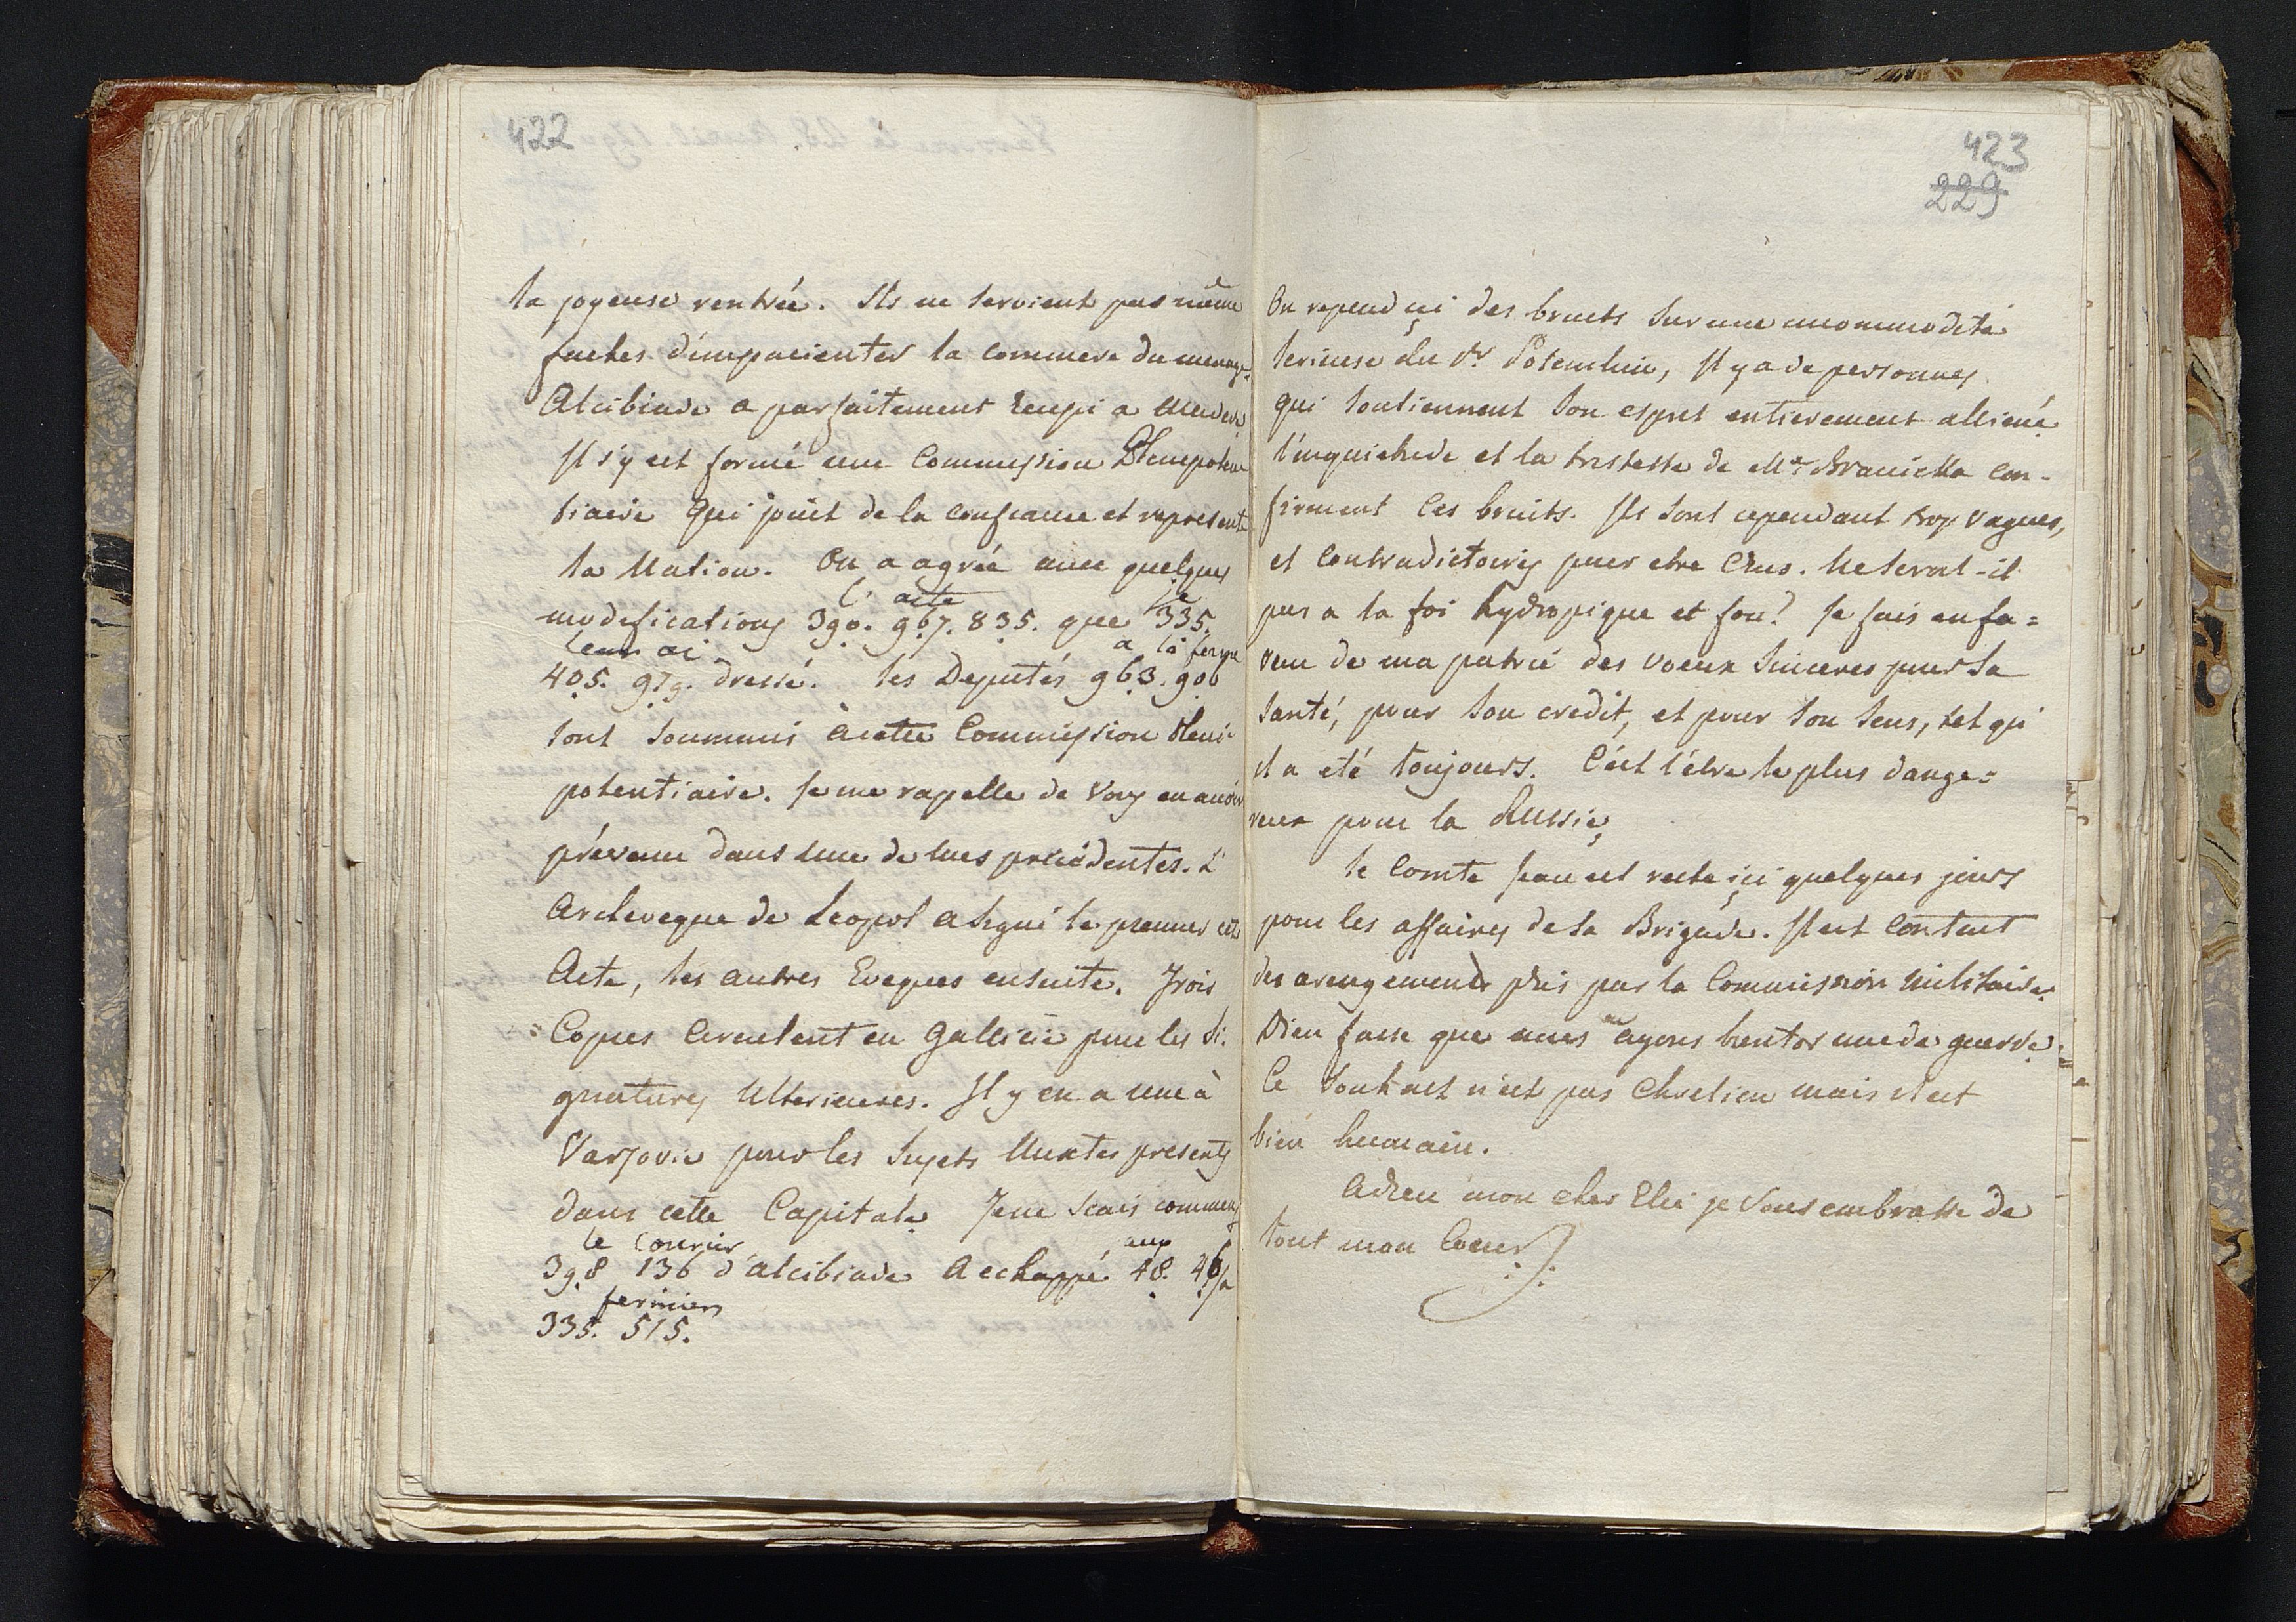 422
la joyeuse rentrée. Ils ne seroient pas même
fachés d'impacienter la commere du menage.
Alcibiade a parfaitement reussi a
Il s'y est formé une Commission Plenipoten
tiaire qui jouit de la confiance et represente
la Nation. On a agréé avec quelques
l' acte
modifications 390. 967. 835. que 335.
leur ai a la ferme
405. 979. dressé. les Deputés 963. 906
sont soummis à cette Commission Pleni-
potentiaire. Je me rapelle de Vous en avoir
prévenu dans une de mes précédentes. L'
Archeveque de Leopol a signé le premier cet
Acte, les autres Eveques ensuite. Trois
Copies Circulent en Gallicie pour les Si-
gnatures Ulterieures. Il y en a une à
Varsovie pour les Sujets Mixtes presents
dans cette Capitale. Je ne scais comment
le courier aux
398 136 d'alcibiade a echappé 48. 46
fermiers
335. 515.
423
229
On repend içi des bruits sur une incommodité
serieuse du Pr Potemkin, Il y a de personnes
qui soutiennent son esprit entierement alliené
l'inquietude et la tristesse de Me Branicka con-
firment ces bruits. Ils sont cependant trop vagues,
et contradictoires pour etre Crus. Ne seroit-il
pas a la foi hydropique et fou? Je fais en fa=
veur de ma patrie des voeux sinceres pour sa
santé, pour son credit, et pour son sens, tel qu'
il a eté toujours. C'est l'étre le plus dange=
reux pour la Russie,
le Comte Jean est resté içi quelques jours
pour les affaires de sa Brigade. Il est content
des arengements pris par la Commission Militaire.
en
Dieu fasse que nous ayons bientot une de guerre.
Ce souhait n'est pas Chretien mais il est
bien humain.
Adieu mon cher Elie je Vous embrasse de
tout mon Coeur